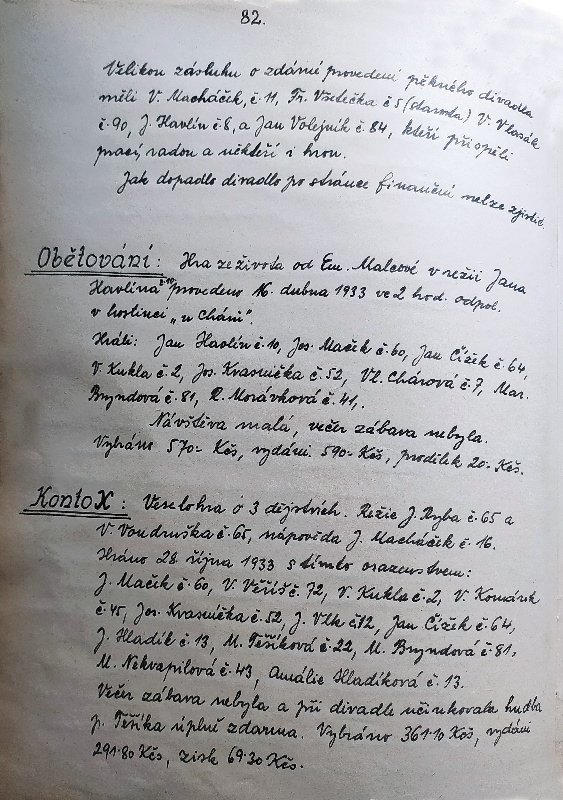 82.
Velikou zásluhu o zdárné provedení pěkného divadla
měli V. Macháček, č. 11, Fr. Všetečka č 5 (starosta) V. Vlasák
č. 90, J. Havlín č 8, a Jan Volejník č. 84, kteří přispěli
prací, radou a někteří i hrou.
Jak dopadlo divadlo po stránce finanční nelze zjistit.
Obětování: Hra ze života od Em. Malcové v režii Jana
Havlína č. 10 provedeno 16. dubna 1933 ve 2 hod. odpol.
v hostinci „u Chárů".
Hráli: Jan Havlín č. 10, Jos. Maček č. 60, Jan Čížek č 64,
V. Kukla č. 2, Jos. Krasnička č. 52, Vl. Chárová č. 7, Mar.
Bryndová č. 81, R. Morávková č. 41.
Návštěva malá, večer zábava nebyla.
Vybráno 570·- Kčs, vydání 590·- Kčs, prodělek 20·- Kčs.
Konto X: Veselohra o 3 dějstvích. Režie J. Ryba č. 65 a
V. Voudruška č. 65, nápověda J. Macháček č. 16.
Hráno 28. října 1933 s tímto osazenstvem:
J. Mačik č. 60, V. Věříš č. 72, V. Kukla č. 2, V. Komárek
č. 45, Jos. Krasnička č. 52, J. Vlk č. 12, Jan Čížek č. 64,
J. Hladík č. 13, M. Těšíková č. 22, M. Bryndová č. 81,
M. Nekvapilová č. 43, Amálie Hladíková č. 13.
Večer zábava nebyla a při divadle učinkovala hudba
p. Těšíka úplně zdarma. Vybráno 361·10 Kčs, vydání
291·80 Kčs, zisk 69·30 Kčs.